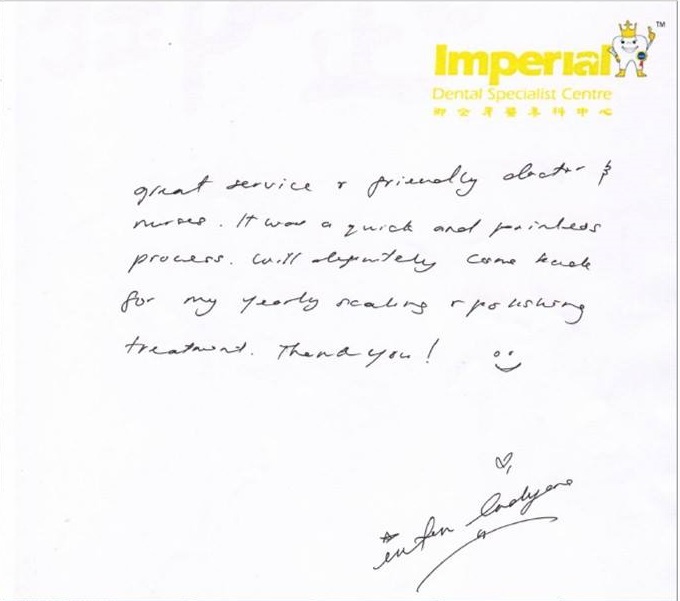 Imperial TM
Dental Specialist Centre
御公牙醫專科中心
great service & friendly doctor &
nurses. It was a quick and painless
process. Will definitely come back
for my yearly scaling & polishing
treatment. Thank you!
intan